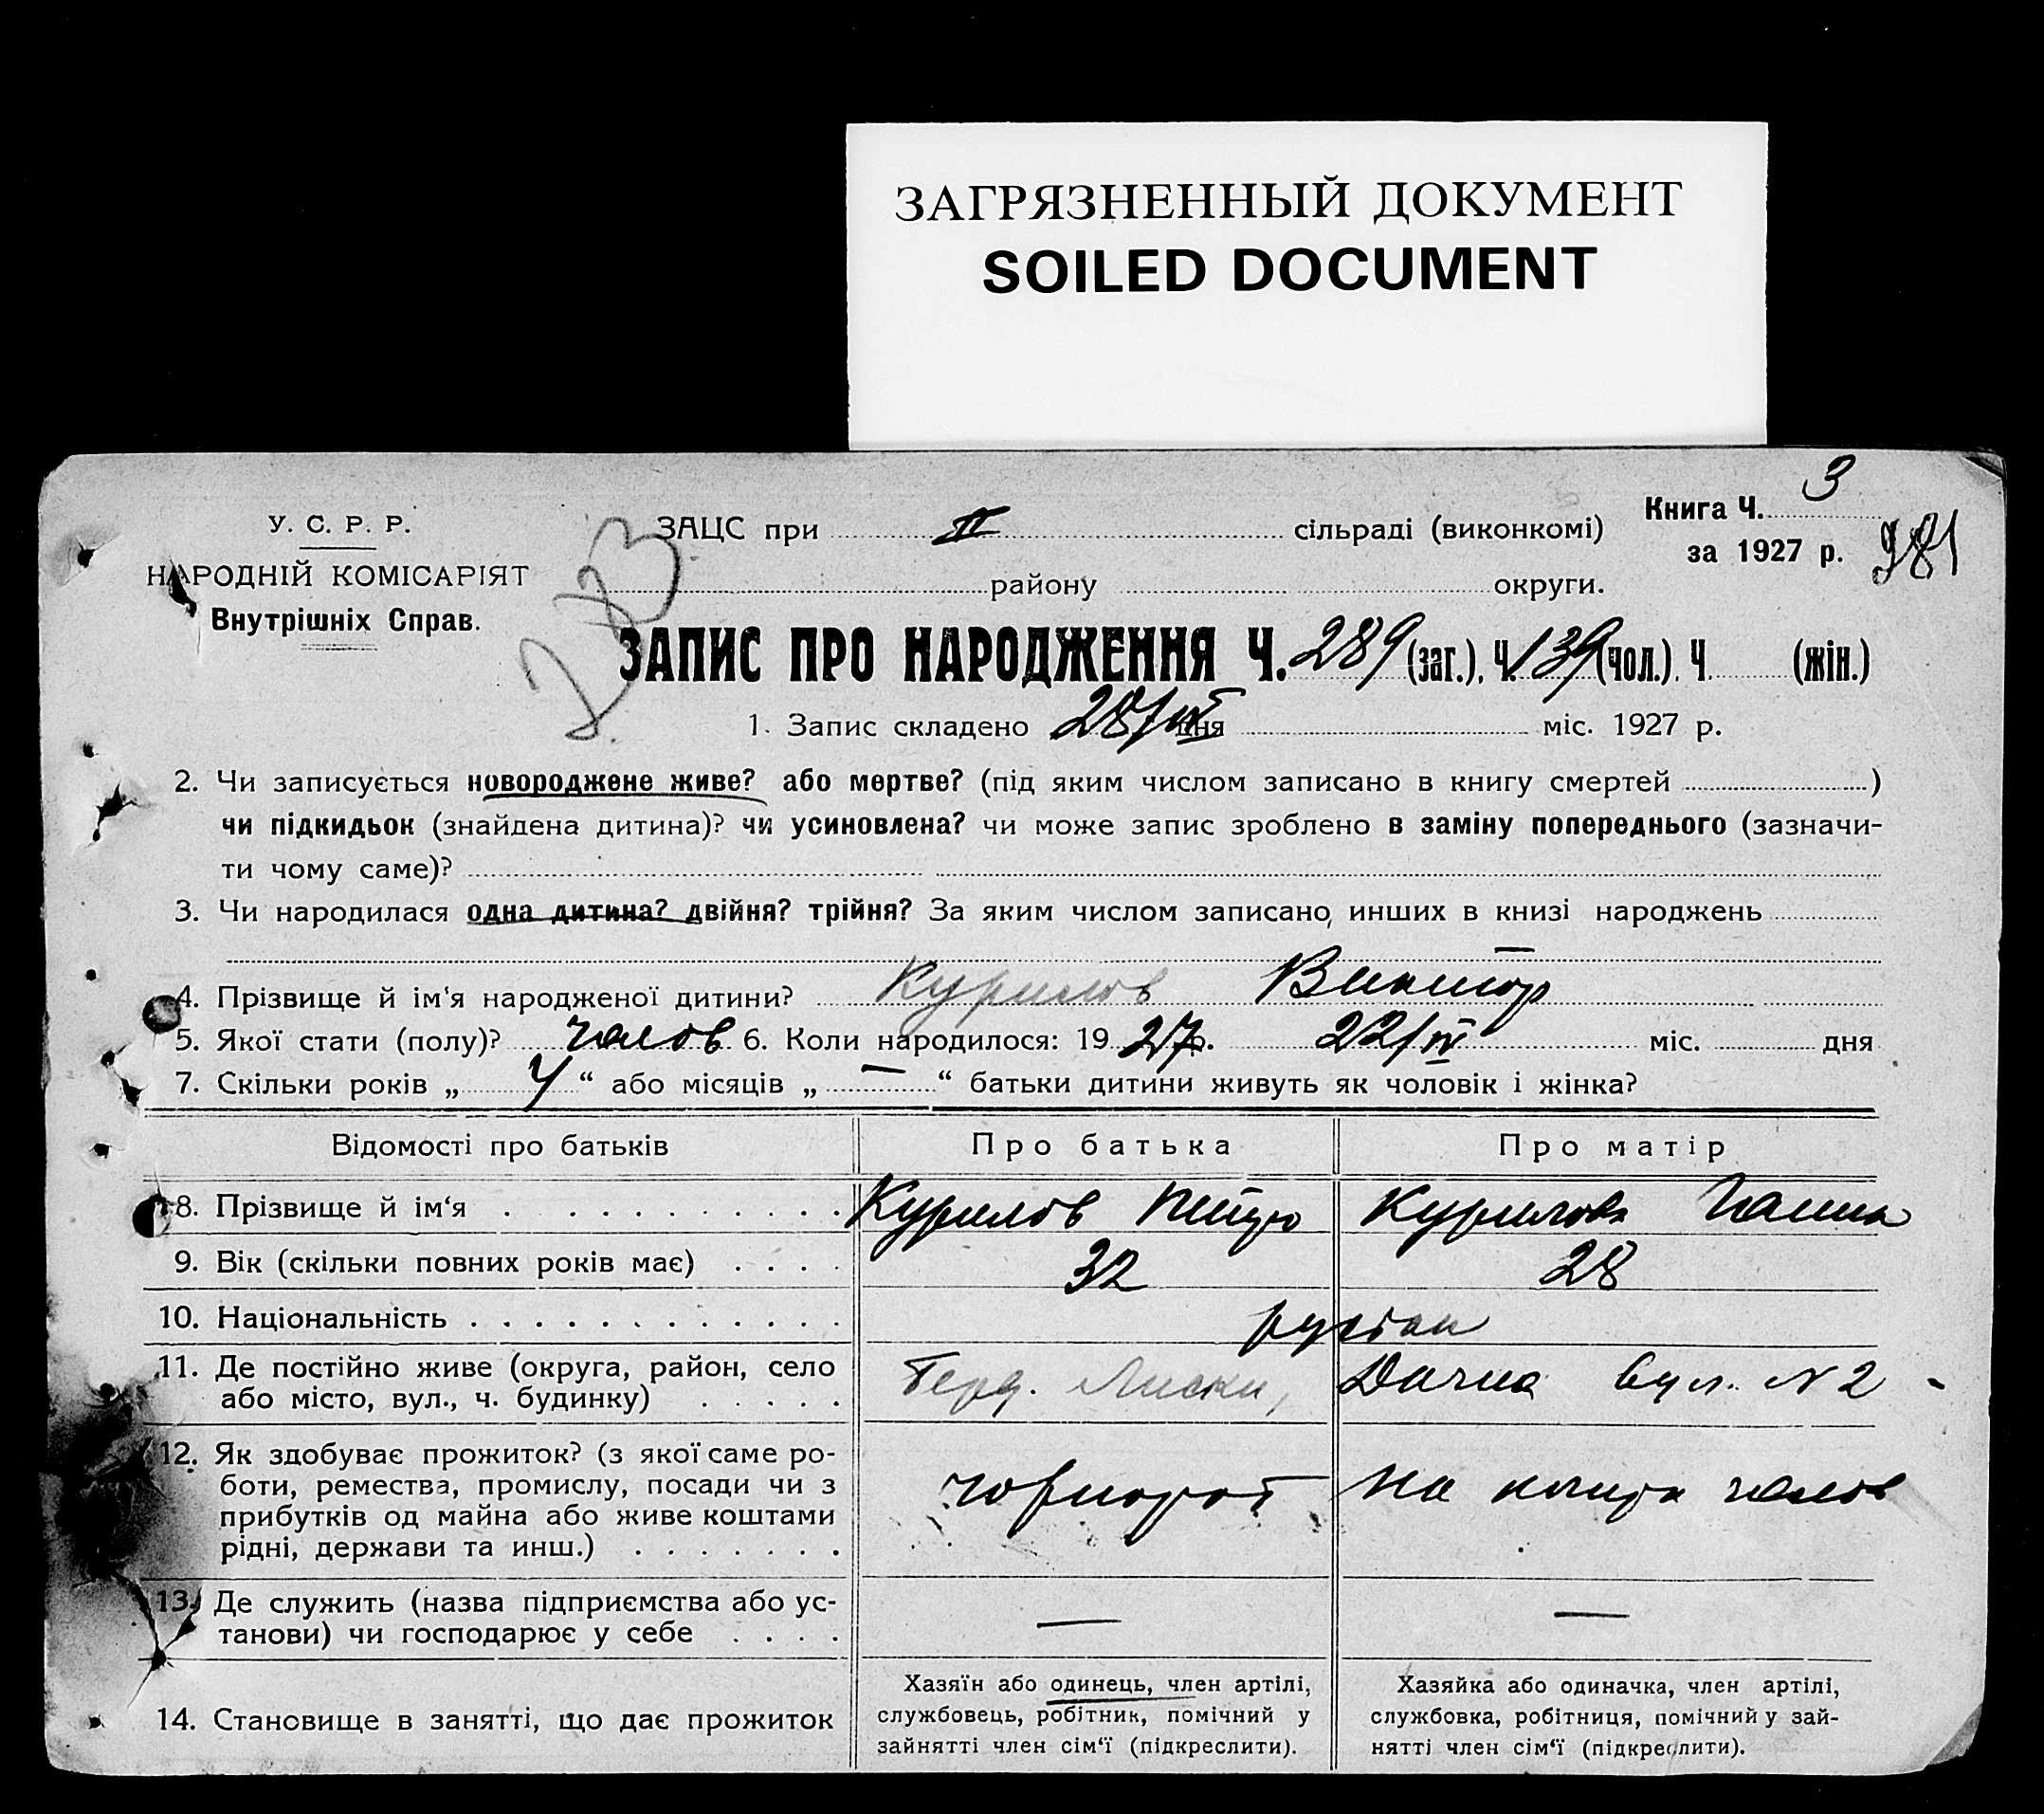 ЗАГРЯЗНЕННЫЙ ДОКУМЕНТ
SOILED DOCUMENT
У. С. Р. Р.
НАРОДНІЙ КОМІСАРІЯТ
Внутрішніх Справ.
ЗАЦС при II сільраді (виконкомі)
району округи.
Книга Ч. 3
за 1927 р. 981
ЗАПИС ПРО НАРОДЖЕННЯ Ч. 289 (заг.), Ч. 139 (чол.). Ч. (жін.)
1. Запис складено 28/IV дня міс. 1927 р.
2. Чи записується новороджене живе? або мертве? (під яким числом записано в книгу смертей )
чи підкидьок (знайдена дитина)? чи усиновлена? чи може запис зроблено в заміну попереднього (зазначи-
ти чому саме)?
3. Чи народилася одна дитина? двійня? трійня? За яким числом записано инших в книзі народжень
4. Прізвище й ім'я народженої дитини? Курилов Виктор
5. Якої стати (полу)? Чолов 6. Коли народилося: 19 27 р. 22/IV міс. дня
7. Скільки років „ 4 “ або місяців „ — “ батьки дитини живуть як чоловік і жінка?
Відомості про батьків Про батька Про матір
8. Прізвище й ім'я Курилов Петро Курилова Ганна
9. Вік (скільки повних років має) 32 28
10. Національність
11. Де постійно живе (округа, район, село
або місто, вул., ч. будинку) Лиски, Дачна вул. N 2 -
12. Як здобуває прожиток? (з якої саме ро-
боти, ремества, промислу, посади чи з
прибутків од майна або живе коштами
рідні, держави та инш.) чорнороб на кошти чолов
13. Де служить (назва підприємства або ус-
танови) чи господарює у себе — —
14. Становище в занятті, що дає прожиток
Хазяїн або одинець, член артілі,
службовець, робітник, помічний у
зайнятті член сім'ї (підкреслити).
Хазяйка або одиначка, член артілі,
службовка, робітниця, помічний у зай-
нятті член сім'ї (підкреслити).